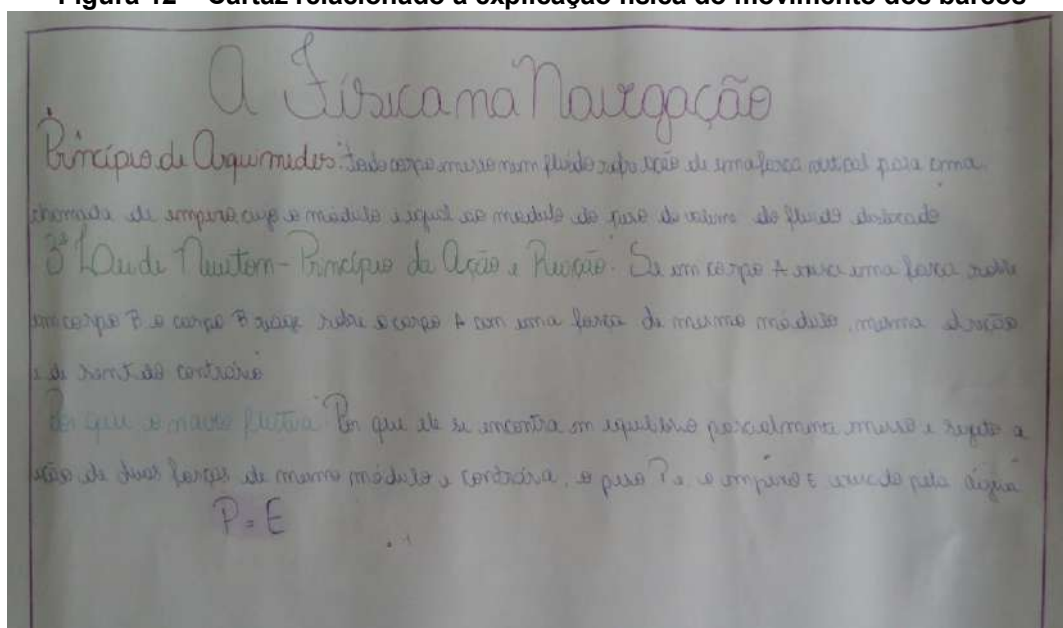 Figura 12 – Cartaz relacionado à explicação física do movimento dos barcos
A Física na Navegação
Princípio de Arquimedes: todo corpo imerso num fluido sofre ação de uma força vertical para cima,
chamada de empuxo cujo o módulo é igual ao módulo do peso do volume do fluido deslocado
3ª Lei de Newtom - Princípio da Ação e Reação. Se um corpo A exerce uma força sobre
um corpo B o corpo B reage sobre o corpo A com uma força de mesmo módulo, mesma direção
e de sentido contrário
Por que o navio flutua? Por que ele se encontra em equilíbrio parcialmente imerso e sujeito a
ação de duas forças de mesmo módulo e contrária, o peso P e, o empuxo E exercido pela água
P = E